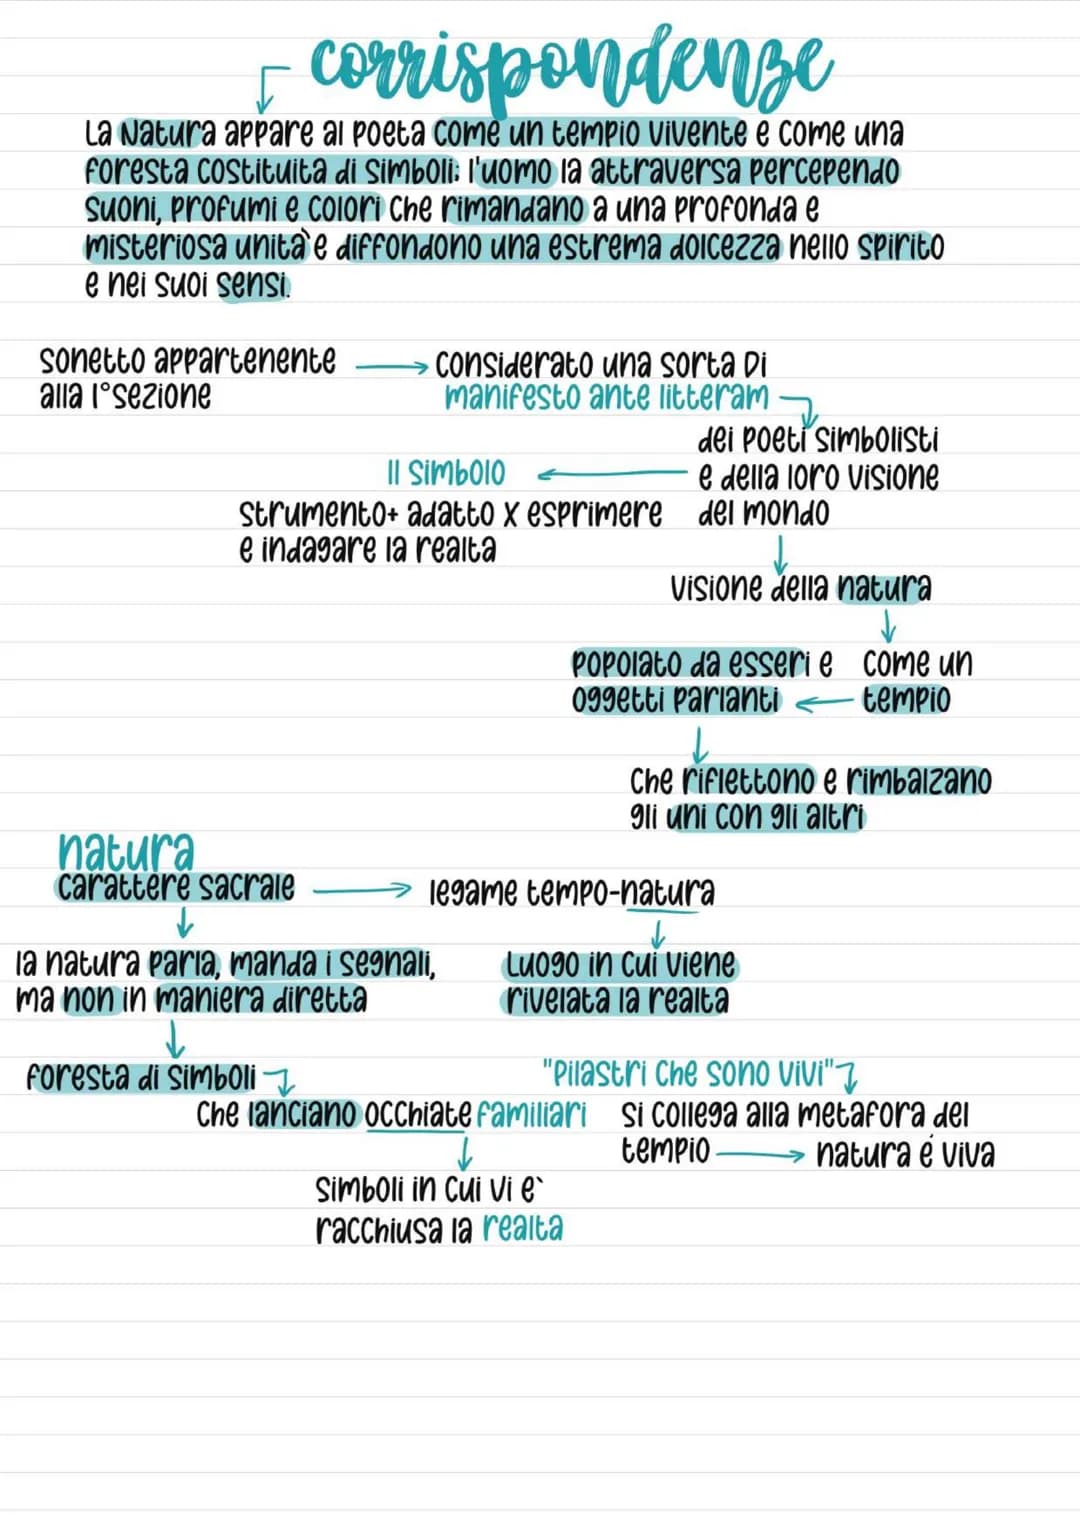 corrispondenze
La Natura appare al poeta come un tempio vivente e come una
foresta costituita di simboli: l'uomo la attraversa percependo
suoni, profumi e colori che rimandano a una profonda e
misteriosa unita` e diffondono una estrema dolcezza nello spirito
e nei suoi sensi.
sonetto appartenente
alla 1° sezione
considerato una sorta Di
manifesto ante litteram
dei poeti simbolisti
e della loro visione
del mondo
Il simbolo
strumento+ adatto x esprimere
e indagare la realta
visione della natura
come un
tempio
popolato da esseri e
oggetti parlanti
che riflettono e rimbalzano
gli uni con gli altri
natura
carattere sacrale
legame tempo-natura
la natura parla, manda i segnali,
ma non in maniera diretta
Luogo in cui viene
rivelata la realta
foresta di simboli
che lanciano occhiate familiari
simboli in cui vi e`
racchiusa la realta
"Pilastri che sono vivi"
si collega alla metafora del
tempio
natura é viva